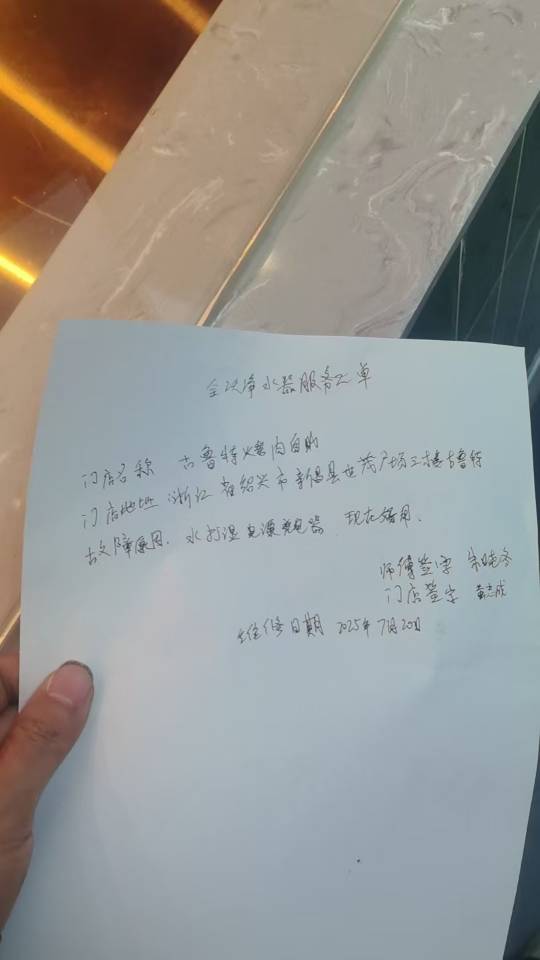 净水器服务工单
门店名称 古鲁特烤肉自助
门店地址 浙江省绍兴市新昌县世茂广场三楼古鲁特
故障原因、水打湿电源变电器 现在能用、
师傅签字
门店签字 黄志成
维修日期 2025年7月20日